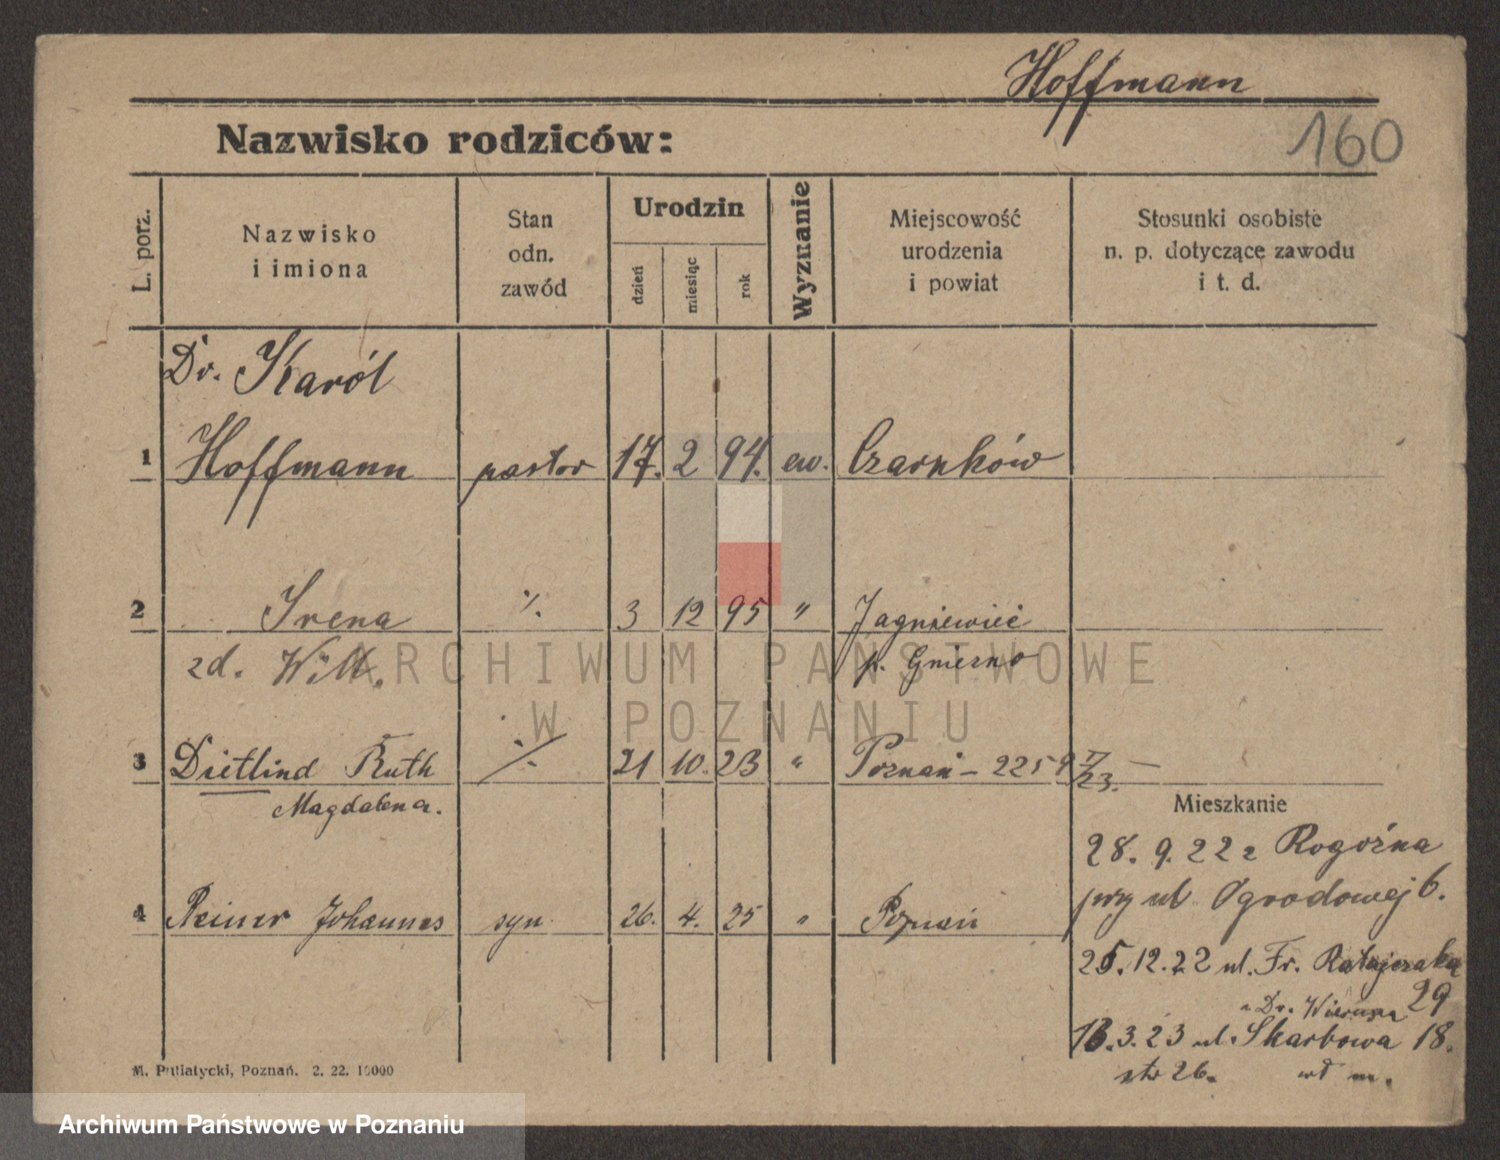 Hoffmann
Nazwisko rodziców:
160
L. porz.
Nazwisko
i imiona
Stan
odn.
zawód
Urodzin
dzień
miesiąc
rok
Wyznanie
Miejscowość
urodzenia
i powiat
Stosunki osobiste
n. p. dotyczące zawodu
i t. d.
Dr. Karól
1 Hoffmann pastor 17. 2 94. ew. Czarnków
2 Irena ./. 3 12 95 " Jagniewice
zd. Witt. p. Gniezno
3 Dietlind Ruth ./. 21 10. 23 " Poznań – 2259
Magdalena.
Mieszkanie
28. 9. 22 z Rogoźna
przy ul Ogrodowej 6.
4 Reiner Johannes syn 26. 4. 25 " Poznań
25. 12. 22 ul. Fr. Ratajczaka
Dr. 29
13. 3. 23 ul. Skarbowa 18.
str 26. m.
M. Putiatycki, Poznań. 2. 22. 10000
ARCHIWUM PAŃSTWOWE
W POZNANIU
Archiwum Państwowe w Poznaniu